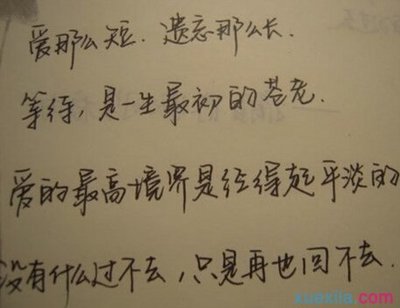 爱那么短.遗忘那么长.
等待,是一生最初的苍老.
爱的最高境界是经得起平淡的
没有什么过不去,只是再也回不去.
xuexila.com